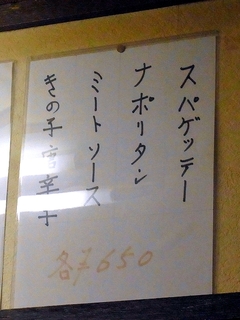 スパゲッテー
ナポリタン
ミートソース
きの子雲辛子
各¥650